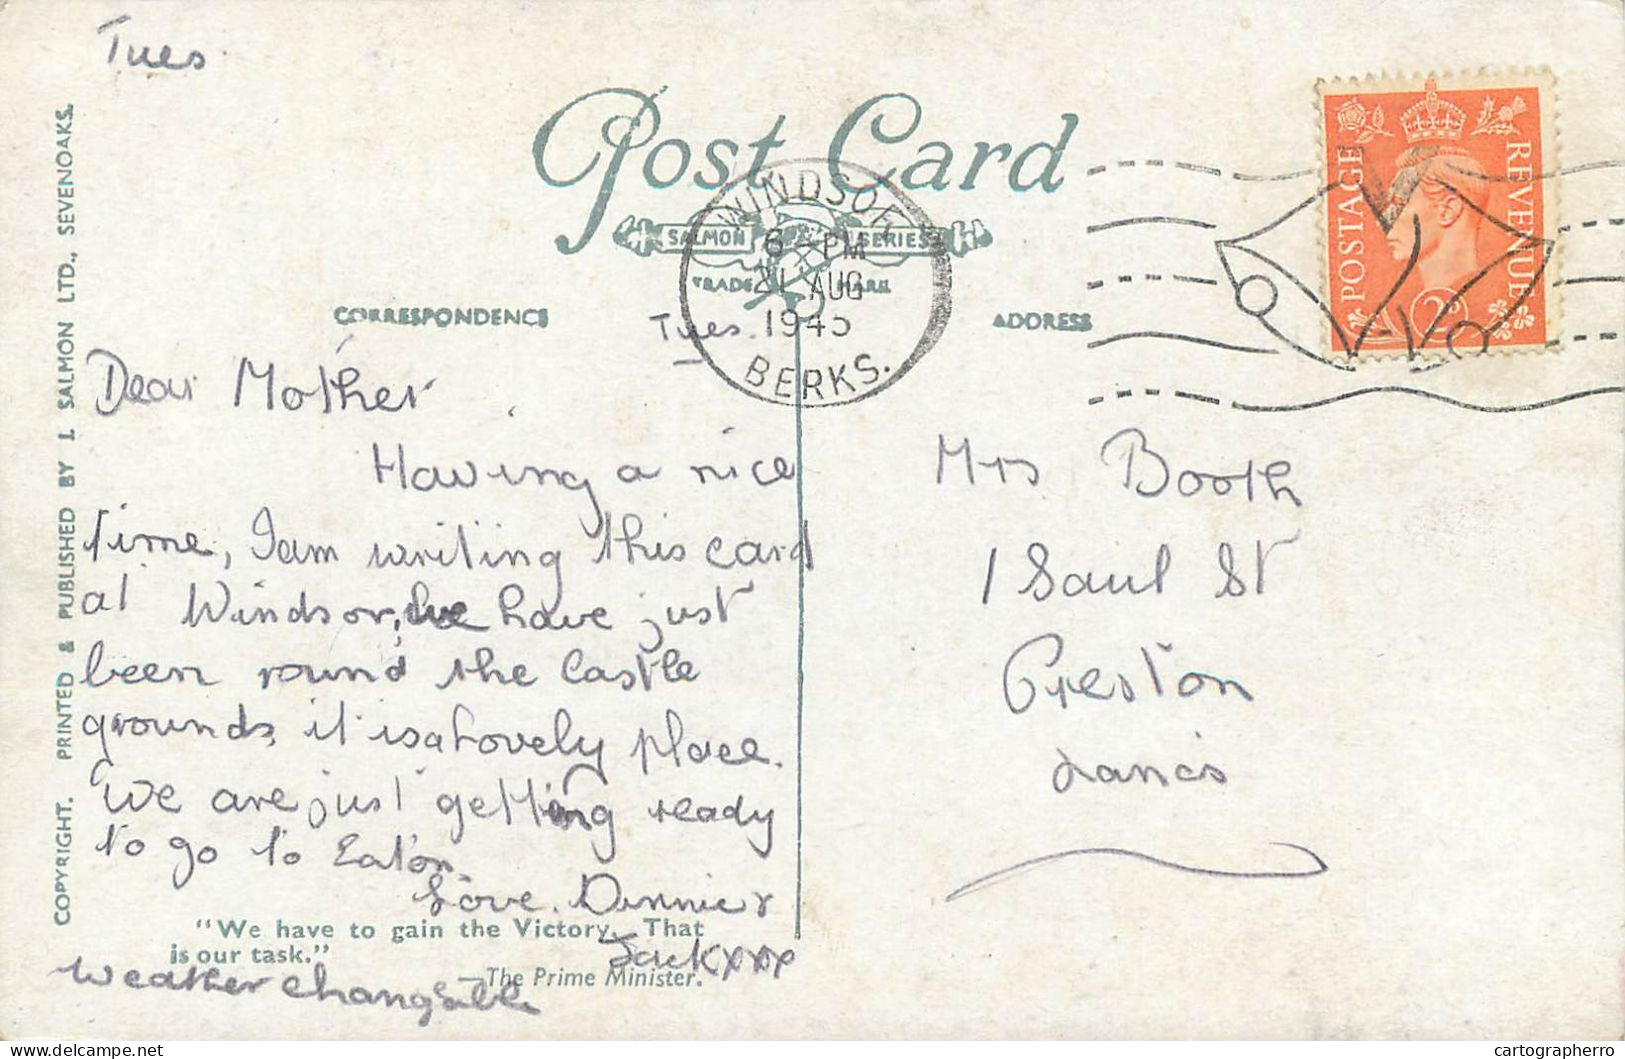 Tues.
Post Card
SALMON SERIES
TRADE MARK
WINDSOR
6 - PM
21 AUG
1945
BERKS.
POSTAGE
REVENUE
2D
CORRESPONDENCE
ADDRESS
Tues.
Dear Mother,
Having a nice
time, I am writing this card
at Windsor, we have just
been round the Castle
grounds, it is a Lovely place.
We are just getting ready
to go to Eaton.
Love. Dinnie &
Jack xxx
Weather Changable
Mrs Booth
1 Saul St
Preston
Lancs
"We have to gain the Victory. That
is our task."
—The Prime Minister.
COPYRIGHT. PRINTED & PUBLISHED BY J. SALMON LTD., SEVENOAKS.
delcampe.net
cartographerro